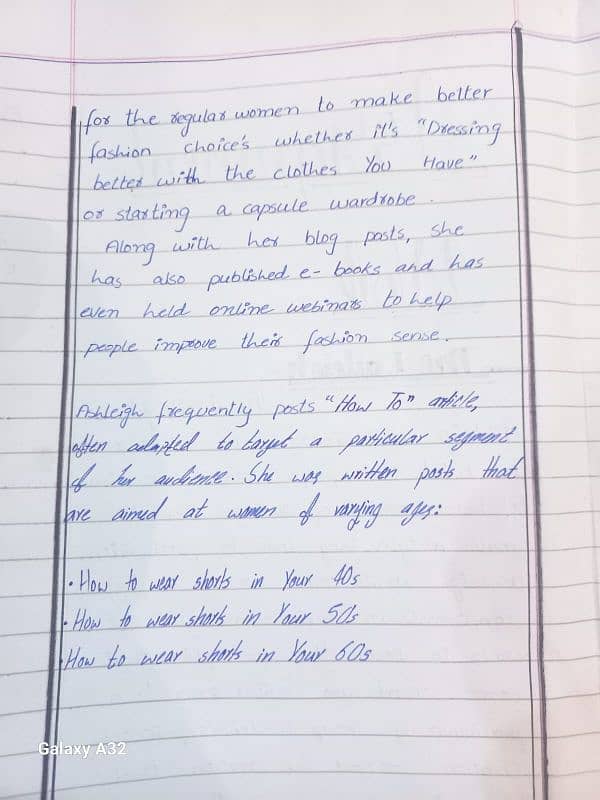 for the regular women to make better
fashion choice's whether it's "Dressing
better with the clothes You Have"
or starting a capsule wardrobe.
Along with her blog posts, she
has also published e-books and has
even held online webinars to help
people improve their fashion sense.
Ashleigh frequently posts "How To" article,
often adapted to target a particular segment
of her audience. She was written posts that
are aimed at women of varying ages:
• How to wear shorts in Your 40s
• How to wear shorts in Your 50s
How to wear shorts in Your 60s
Galaxy A32